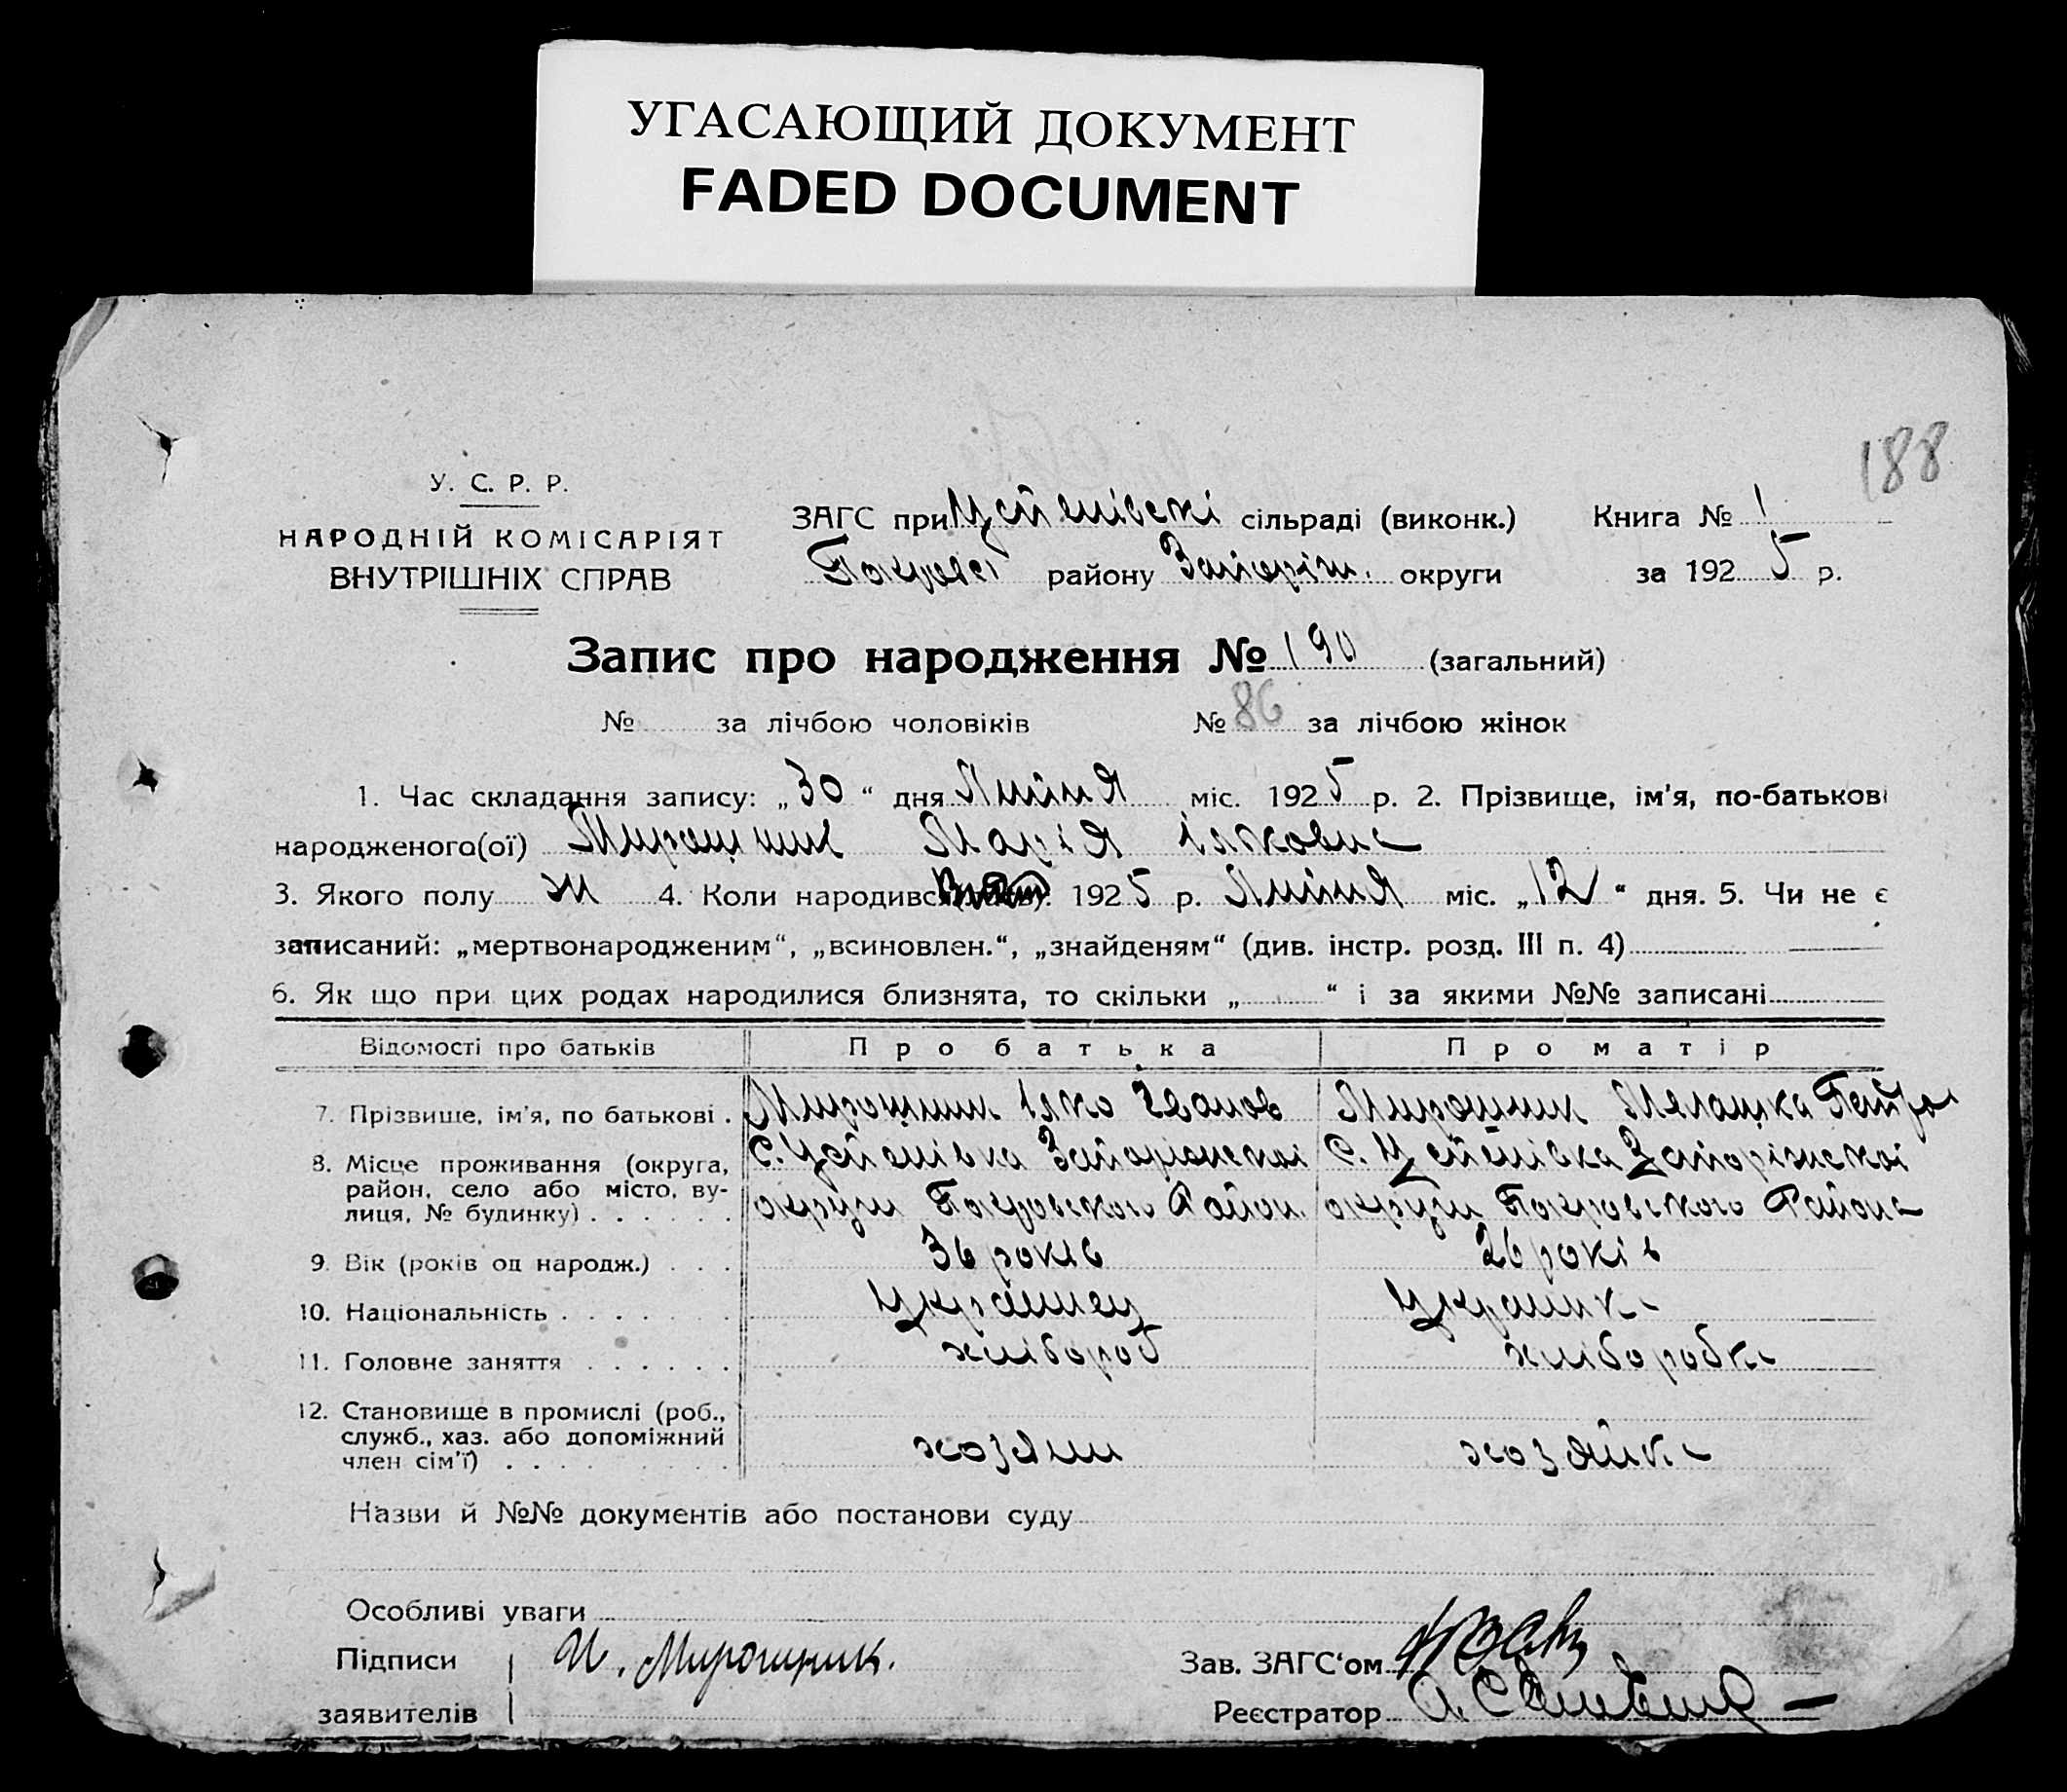 УГАСАЮЩИЙ ДОКУМЕНТ
FADED DOCUMENT
188
У. С. Р. Р.
НАРОДНІЙ КОМІСАРІЯТ
ВНУТРІШНІХ СПРАВ
ЗАГС при Устенівскі сільраді (виконк.) Книга № 1
Покровс району Запоріж. округи за 1925 р.
Запис про народження № 190 (загальний)
№ за лічбою чоловіків № 86 за лічбою жінок
1. Час складання запису: „30“ дня Липня міс. 1925 р. 2. Прізвище, ім'я, по-батькові
народженого(ої) Мирошник Марія Ілковна
3. Якого полу ж 4. Коли народивс 1925 р. Липня міс. „12“ дня. 5. Чи не є
записаний: „мертвонародженим“, „всиновлен.“, „знайденям“ (див. інстр. розд. III п. 4)
6. Як що при цих родах народилися близнята, то скільки „ “ і за якими №№ записані
Відомості про батьків Про батька Про матір
7. Прізвище, ім'я, по батькові . Мирошник Ілко Іванов Мирошник Мялашка Петро
8. Місце проживання (округа, район, село або місто, вулиця, № будинку) . . . . . .
с. Устенівка Запоріжскоі с. Устенівка Запоріжскоі
округи Покровского Район. округи Покровского Района
9. Вік (років од народж.) . . . 36 років 26 років
10. Національність . . . . . . . Украинец Украинка
11. Головне заняття . . . . . . хлібороб хліборобка
12. Становище в промислі (роб., служб., хаз. або допоміжний член сім'ї) . . . . . . . . .
хозяин хозяйка
Назви й №№ документів або постанови суду
Особливі уваги
Підписи И. Мирошник. Зав. ЗАГС‘ом
заявителів Реєстратор